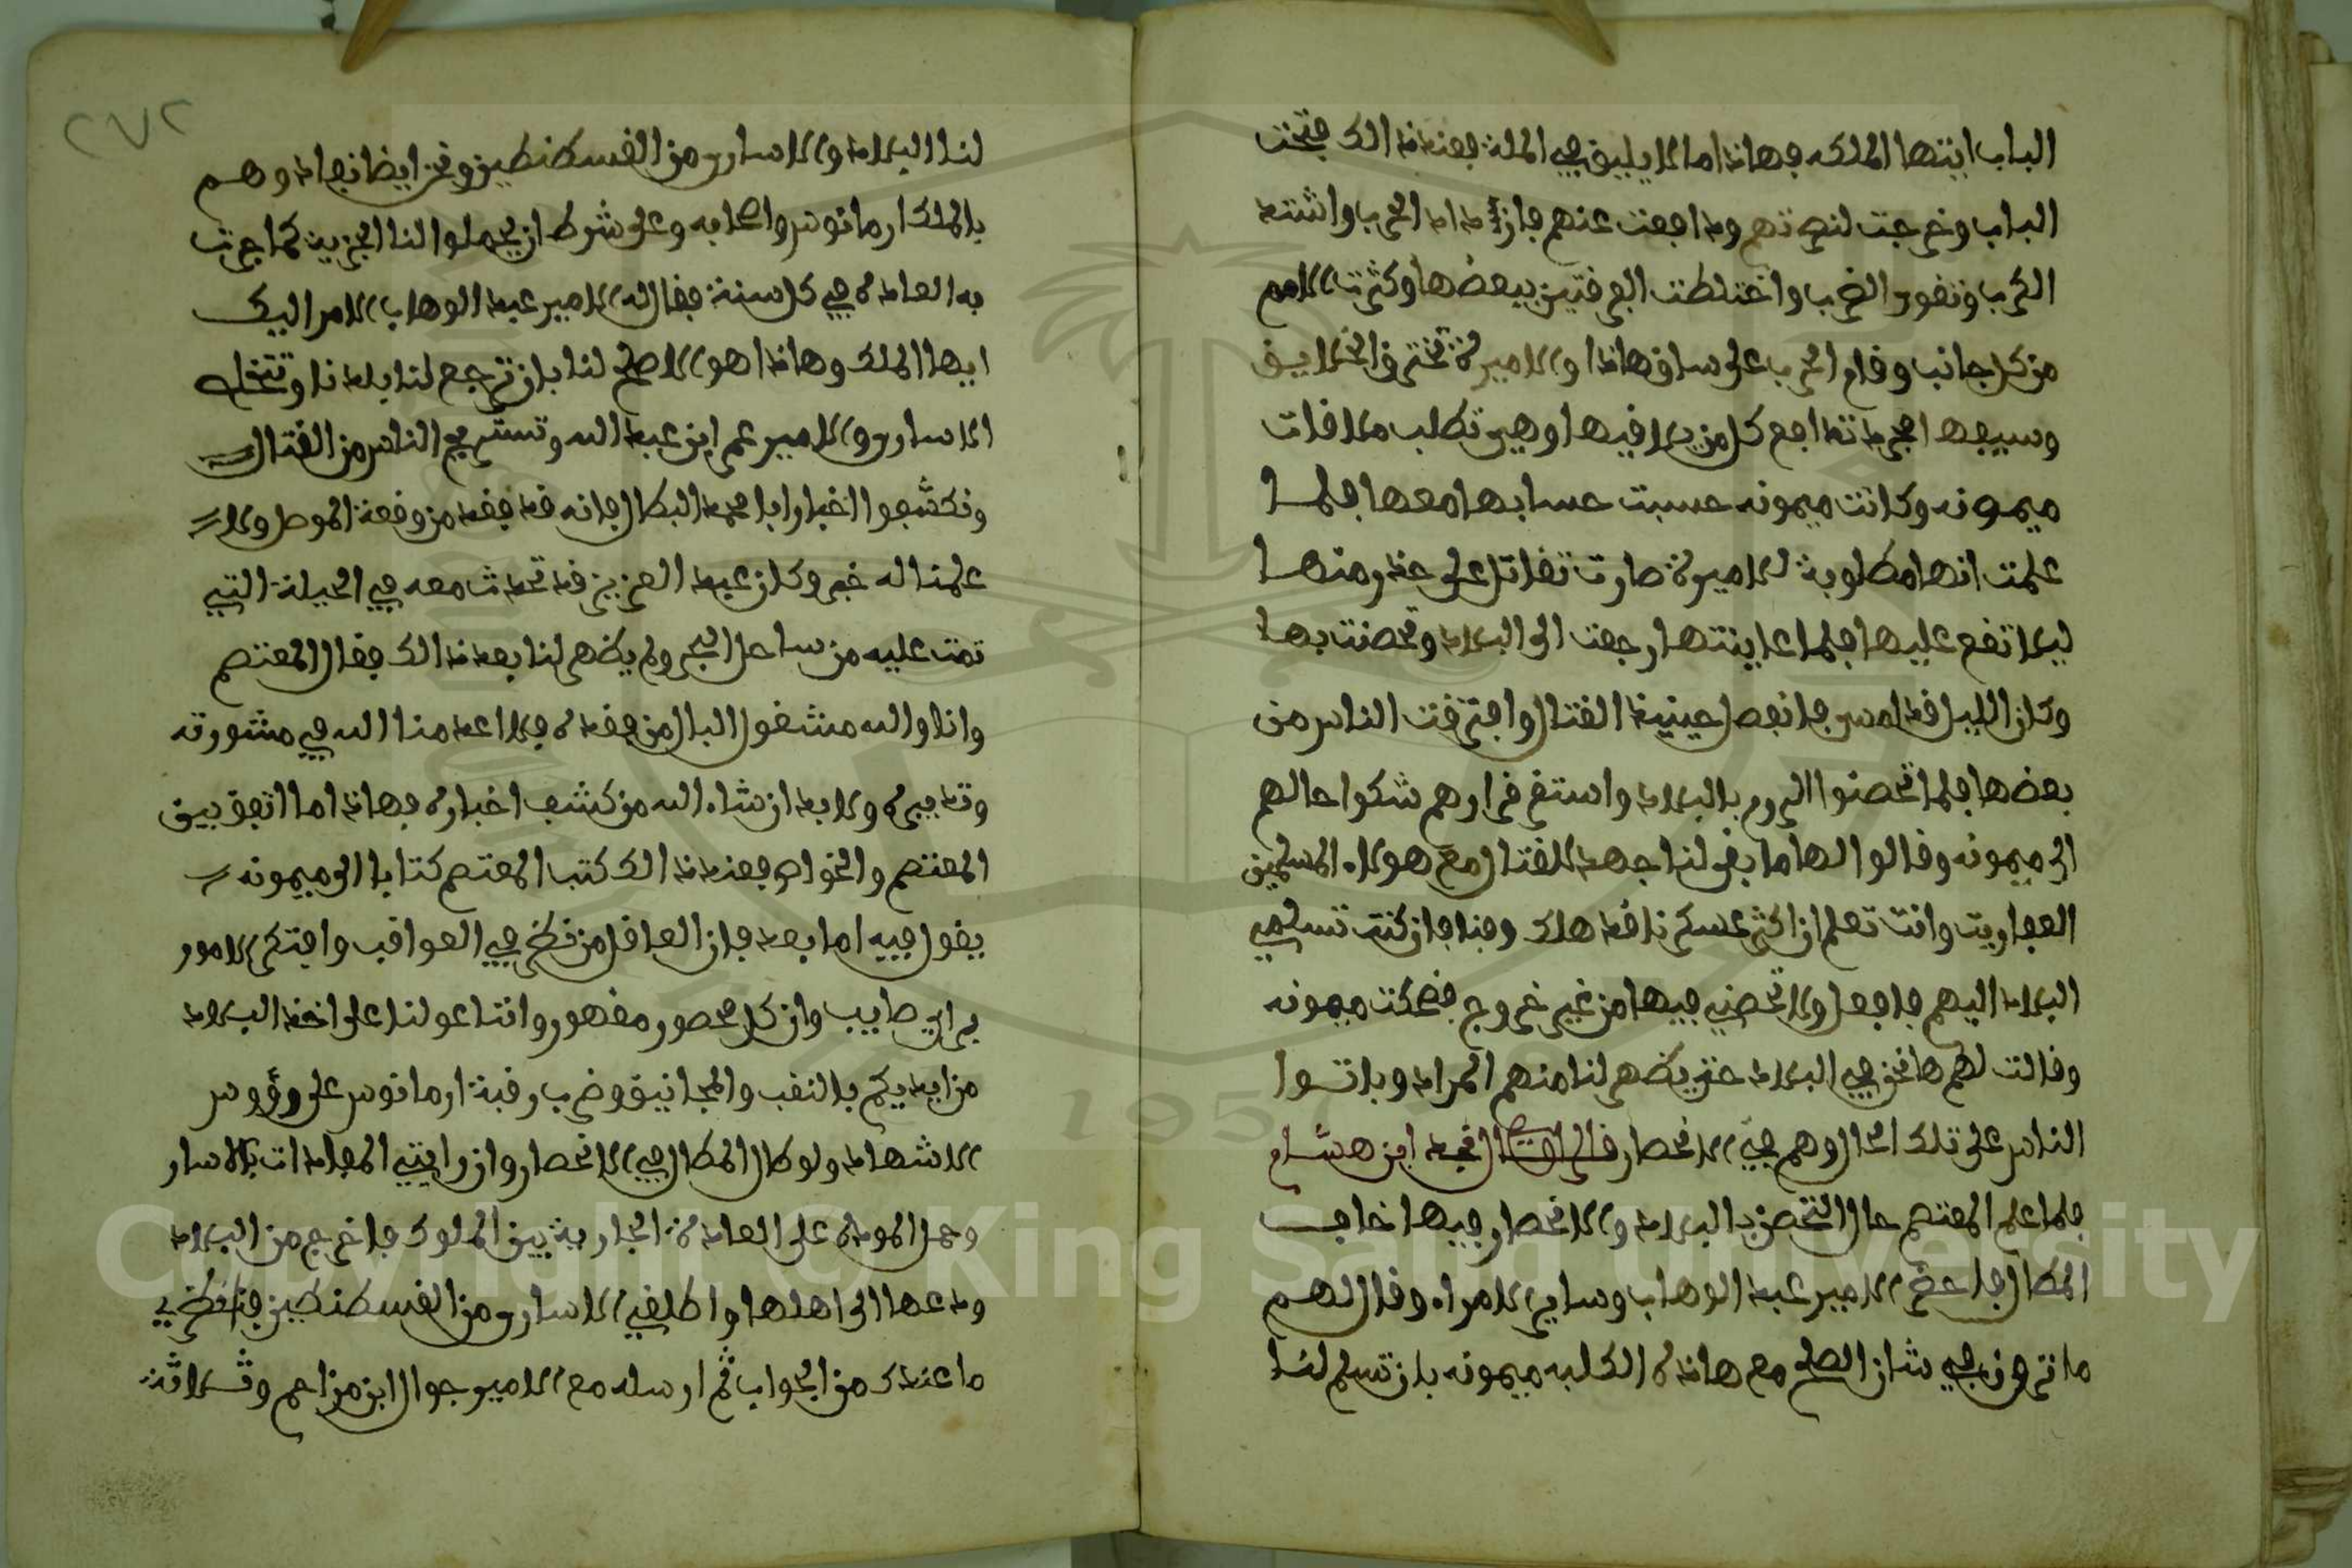 الباب ايتها الملكه فهاذا ما لا يليق في الملة فعند ذالك فتحت
الباب وخرجت لنصرتهم ودافعت عنهم فازداد الحرب واشتد
الكرب وتقور الضرب واختلطت الفرقتين ببعضها وكثرت الامم
من كل جانب وقام الحرب على ساق هاذا والاميرة تخترق الخلايق
وسيفها مجرد تدافع كل من يلاقيها وهي تطلب ملاقات
ميمونه وكانت ميمونه حسبت حسابها معها فلما
علمت انها مطلوبة للاميرة صارت تقاتل على حذر منها
ليلا تقع عليها فلما عاينتها رجعت الى البلاد وتحصنت بها
وكان الليل قد امسى فانفصل حينيذ القتال وافترقت الناس من
بعضها فلما تحصنوا الروم بالبلاد واستقر قرارهم شكوا حالهم
الى ميمونه وقالوا لها ما بقى لنا جهد للقتال مع هولاء المسلمين
العفاريت وانت تعلم ان اكثر عسكرنا قد هلك وفنا فان كنت تسلمي
البلاد اليهم فافعل ولا تحصني فيها من غير خروج فضحكت ميمونه
وقالت لهم ها نحن في البلاد حتى يظهر لنا منهم المراد وباتوا
الناس على تلك الحال وهم في الانحصار قال نجد ابن هشام
فلما علم المعتصم حال التحصن بالبلاد والانحصار فيها خاف
المطال فاحضر الامير عبد الوهاب وساير الامراء وقال لهم
ما ترون في شان الصلح مع هاذه الكلبه ميمونه بان تسلم لنا
٢٧٢
لنا البلاد والاسارى من القسطنطين ونحن ايضا نفادوهم
بالملك ارمانوس واصحابه وعلى شرط ان يحملوا لنا الجزية كما جرت
به العاده في كل سنة فقال له الامير عبد الوهاب الامر اليك
ايها الملك وهاذا هو الاصلح لنا بان ترجع لنا بلادنا وتتخلص
الاسارى والامير عمر ابن عبد الله وتستريح الناس من القتال
ونكشفوا اخبار ابا محمد البطال فانه قد فقد من وقعة الموصل ولا
علمنا له خبر وكان عبد العزيز قد تحدث معه في الحيلة التي
تمت عليه من ساحل البحر ولم يظهر لنا بعد ذالك فقال المعتصم
وانا والله مشغول البال من فقده فلا اعدمنا الله في مشورته
وتدبيره ولا بد ان شاء الله من كشف اخباره فهاذا ما اتفق بين
المعتصم والخواص فعند ذالك كتب المعتصم كتابا الى ميمونه
يقول فيه اما بعد فان العاقل من نظر في العواقب وافتكر الامور
براي صايب وان كل محصور مقهور وانتا عولنا على اخذ البلاد
من ايديكم بالنقب والمجانيق وضرب رقبة ارمانوس على رؤوس
الاشهاد ولو طال المطال في الانحصار وان رايتي المفادات بالاسار
وحمل الموده على العادة الجارية بين الملوك فاخرج من البلاد
ودعها الى اهلها واطلقي الاسارى من القسطنطين فانظري
ما عندك من الجواب ثم ارسله مع الامير جوال ابن مزاحم وثلاثة